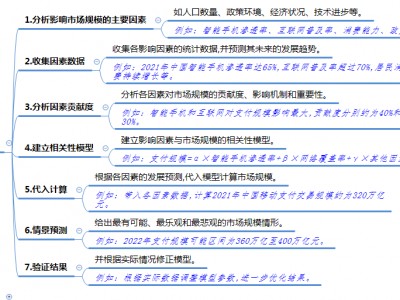 如人口数量、政策环境、经济状况、技术进步等。
1.分析影响市场规模的主要因素
例如：智能手机渗透率、互联网普及率、消费能力、政
收集各影响因素的统计数据,并预测其未来的发展趋势。
2.收集因素数据
例如：2021年中国智能手机渗透率达65%,互联网普及率超过70%,居民消
费持续增长等。
分析各因素对市场规模的贡献度、影响机制和重要性。
3.分析因素贡献度
例如：智能手机和互联网对支付规模影响最大,贡献度分别约为40%和
30%。
建立影响因素与市场规模的相关性模型。
4.建立相关性模型
例如：支付规模=α×智能手机渗透率+β×网络覆盖率+γ×其他因
根据各因素的发展预测,代入模型计算市场规模。
5.代入计算
例如：带入各因素数据,计算2021年中国移动支付交易规模约为320万亿
元。
给出最有可能、最乐观和最悲观的市场规模情形。
6.情景预测
例如：2022年支付规模可能区间为360万亿至400万亿元。
并根据实际情况修正模型。
7.验证结果
例如：根据实际数据调整模型参数,进一步优化结果。